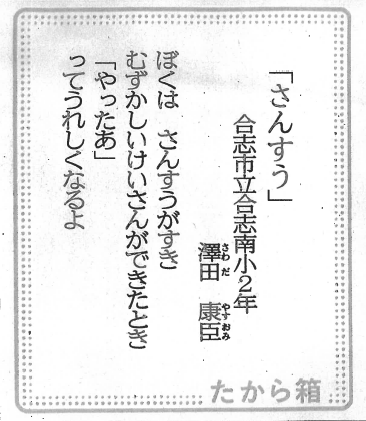 「さんすう」
合志市立合志南小２年
澤田　康臣
さわだ　やすおみ
ぼくは　さんすうがすき
むずかしいけいさんができたとき
「やったあ」
ってうれしくなるよ
たから箱